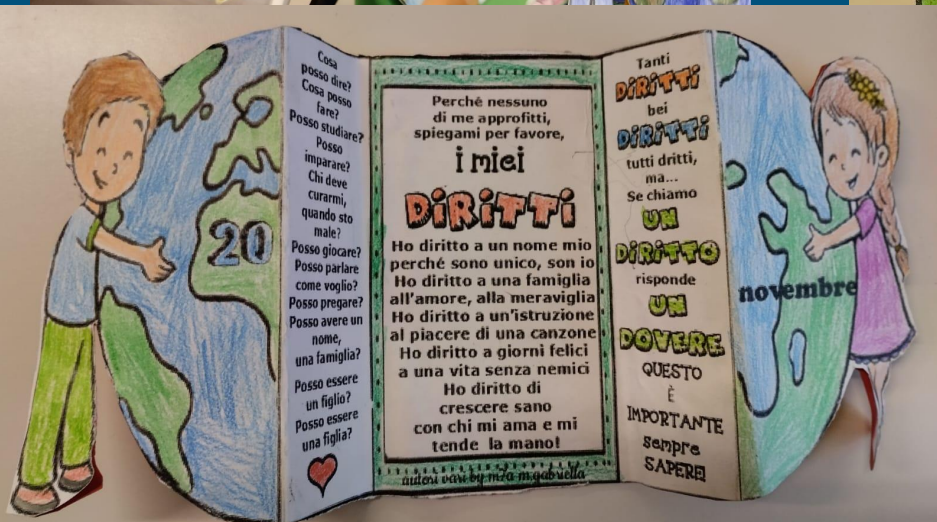 20
Cosa
posso dire?
Cosa posso
fare?
Posso studiare?
Posso
imparare?
Chi deve
curarmi,
quando sto
male?
Posso giocare?
Posso parlare
come voglio?
Posso pregare?
Posso avere un
nome,
una famiglia?
Posso essere
un figlio?
Posso essere
una figlia?
Perché nessuno
di me approfitti,
spiegami per favore,
i miei
DiRiTTi
Ho diritto a un nome mio
perché sono unico, son io
Ho diritto a una famiglia
all'amore, alla meraviglia
Ho diritto a un'istruzione
al piacere di una canzone
Ho diritto a giorni felici
a una vita senza nemici
Ho diritto di
crescere sano
con chi mi ama e mi
tende la mano!
autori vari by m7a m.gabriella
Tanti
DiRiTTi
bei
DiRiTTi
tutti dritti,
ma...
Se chiamo
UN
DiRiTTO
risponde
UN
DOVERE
QUESTO
È
IMPORTANTE
sempre
SAPERE!
novembre